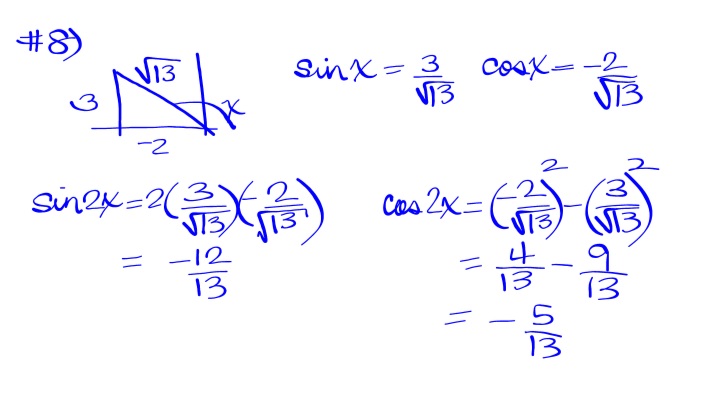 #8)
√13
3
x
-2
sinx = 3/√13 cosx = -2/√13
sin2x = 2(3/√13)(-2/√13)
= -12/13
cos2x = (-2/√13)² - (3/√13)²
= 4/13 - 9/13
= - 5/13